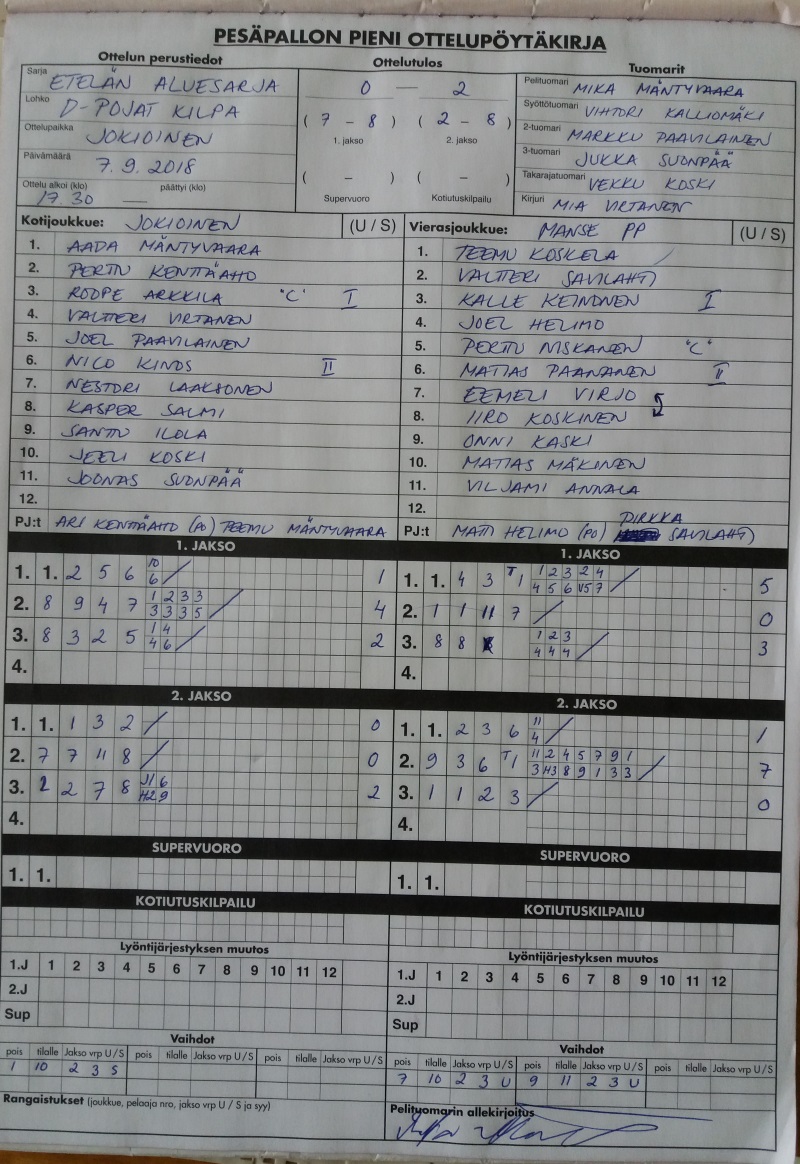 PESÄPALLON PIENI OTTELUPÖYTÄKIRJA
Ottelun perustiedot
Sarja ETELÄN ALUESARJA
Lohko D-POJAT KILPA
Ottelupaikka JOKIOINEN
Päivämäärä 7.9.2018
Ottelu alkoi (klo) päättyi (klo)
17.30 —
Ottelutulos
0 — 2
( 7 – 8 ) ( 2 – 8 )
1. jakso 2. jakso
( – ) ( – )
Supervuoro Kotiutuskilpailu
Tuomarit
Pelituomari MIKA MÄNTYVAARA
Syöttötuomari VIHTORI KALLIOMÄKI
2-tuomari MARKKU PAAVILAINEN
3-tuomari JUKKA SUONPÄÄ
Takarajatuomari VEKKU KOSKI
Kirjuri MIA VIRTANEN
Kotijoukkue: JOKIOINEN (U / S)
1. AADA MÄNTYVAARA
2. PERTTU KENTTÄAHO
3. ROOPE ARKKILA "C" I
4. VALTTERI VIRTANEN
5. JOEL PAAVILAINEN
6. NICO KINOS II
7. NESTORI LAAKSONEN
8. KASPER SALMI
9. SANTTU ILOLA
10. JEELI KOSKI
11. JOONAS SUONPÄÄ
12.
PJ:t ARI KENTTÄAHO (PO) TEEMU MÄNTYVAARA
Vierasjoukkue: MANSE PP (U / S)
1. TEEMU KOSKELA
2. VALTTERI SAVILAHTI
3. KALLE KEINONEN I
4. JOEL HELIMO
5. PERTTU NISKANEN "C"
6. MATIAS PAANANEN II
7. EEMELI VIRJO
8. IIRO KOSKINEN
9. ONNI KASKI
10. MATIAS MÄKINEN
11. VILJAMI ANNALA
12.
PJ:t MATTI HELIMO (PO) PIRKKA SAVILAHTI
1. JAKSO
1. 1. 2 5 6 10 / 1
6
2. 8 9 4 7 1 2 3 3 / 4
3 3 3 5
3. 8 3 2 5 1 4 / 2
4 6
4.
1. JAKSO
1. 1. 4 3 T1 1 2 3 2 4 / 5
4 5 6 V5 7
2. 1 1 11 7 / 0
3. 8 8 1 2 3 / 3
4 4 4
4.
2. JAKSO
1. 1. 1 3 2 / 0
2. 7 7 11 8 / 0
3. 2 2 7 8 J1 6 2
H2 9
4.
2. JAKSO
1. 1. 2 3 6 11 / 1
4
2. 9 3 6 T1 11 2 4 5 7 9 1 / 7
3 H3 8 9 1 3 3
3. 1 1 2 3 / 0
4.
SUPERVUORO
1. 1.
SUPERVUORO
1. 1.
KOTIUTUSKILPAILU
KOTIUTUSKILPAILU
Lyöntijärjestyksen muutos
1.J 1 2 3 4 5 6 7 8 9 10 11 12
2.J
Sup
Lyöntijärjestyksen muutos
1.J 1 2 3 4 5 6 7 8 9 10 11 12
2.J
Sup
Vaihdot
pois tilalle Jakso vrp U / S pois tilalle Jakso vrp U / S pois tilalle Jakso vrp U / S
1 10 2 3 S
Vaihdot
pois tilalle Jakso vrp U / S pois tilalle Jakso vrp U / S pois tilalle Jakso vrp U / S
7 10 2 3 U 9 11 2 3 U
Rangaistukset (joukkue, pelaaja nro, jakso vrp U / S ja syy)
Pelituomarin allekirjoitus